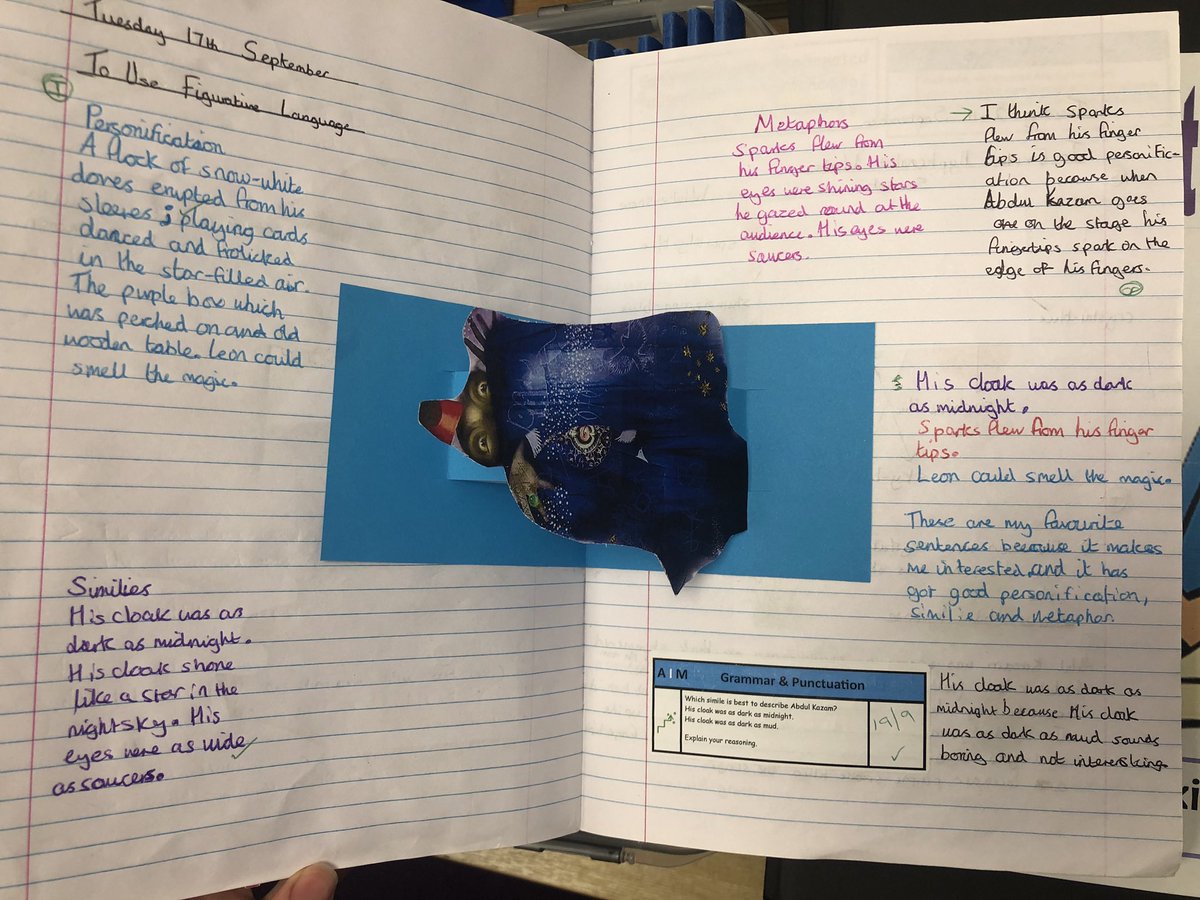 Tuesday 17th September
To Use Figurative Language
I
Personification
A flock of snow-white
doves erupted from his
sleeves ; playing cards
danced and frolicked
in the star-filled air.
The purple box which
was perched on and old
wooden table. Leon could
smell the magic.
Similies
His cloak was as
dark as midnight.
His cloak shone
like a star in the
nightsky. His
eyes were as wide
as saucers.
Metaphors
Sparks flew from
his finger tips. His
eyes were shining stars
he gazed round at the
audience. His eyes were
saucers.
→ I think sparks
flew from his finger
tips is good personific-
ation because when
Abdul Kazam goes
one on the stage his
fingertips spark on the
edge of his fingers.
His cloak was as dark
as midnight.
Sparks flew from his finger
tips.
Leon could smell the magic.
These are my favourite
sentences because it makes
me interested and it has
got good personification,
similie and metaphor.
AIM Grammar & Punctuation
Which simile is best to describe Abdul Kazam?
His cloak was as dark as midnight.
His cloak was as dark as mud.
Explain your reasoning.
19/9
His cloak was as dark as
midnight because His cloak
was as dark as mud sounds
boring and not interesting.